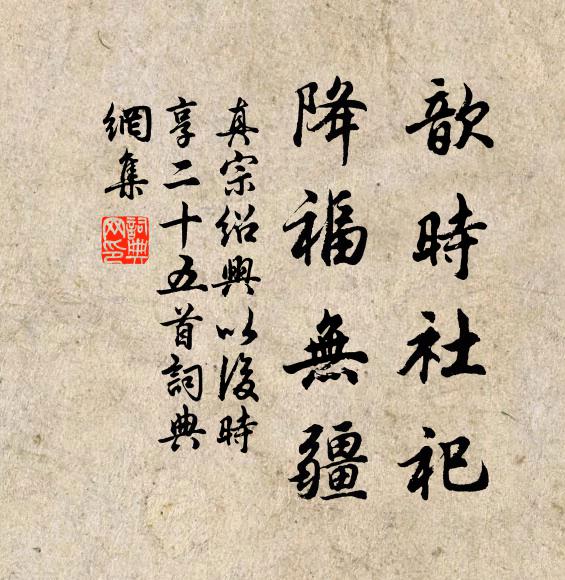 歆時社祀
降福無疆
真宗紹興以後時
享二十五首詞典
網集
詞典網印